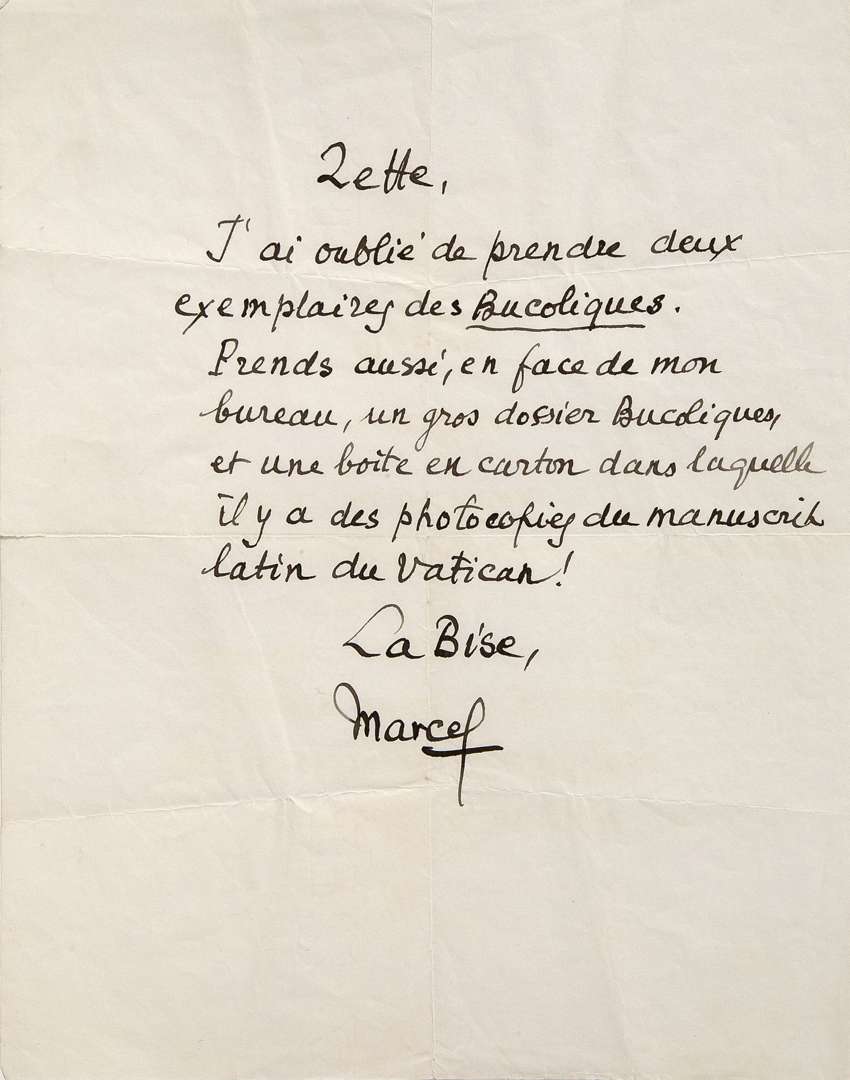 Zette,
J'ai oublié de prendre deux
exemplaires des Bucoliques.
Prends aussi, en face de mon
bureau, un gros dossier Bucoliques,
et une boîte en carton dans laquelle
il y a des photocopies du manuscrit
latin du Vatican!
La Bise,
Marcel